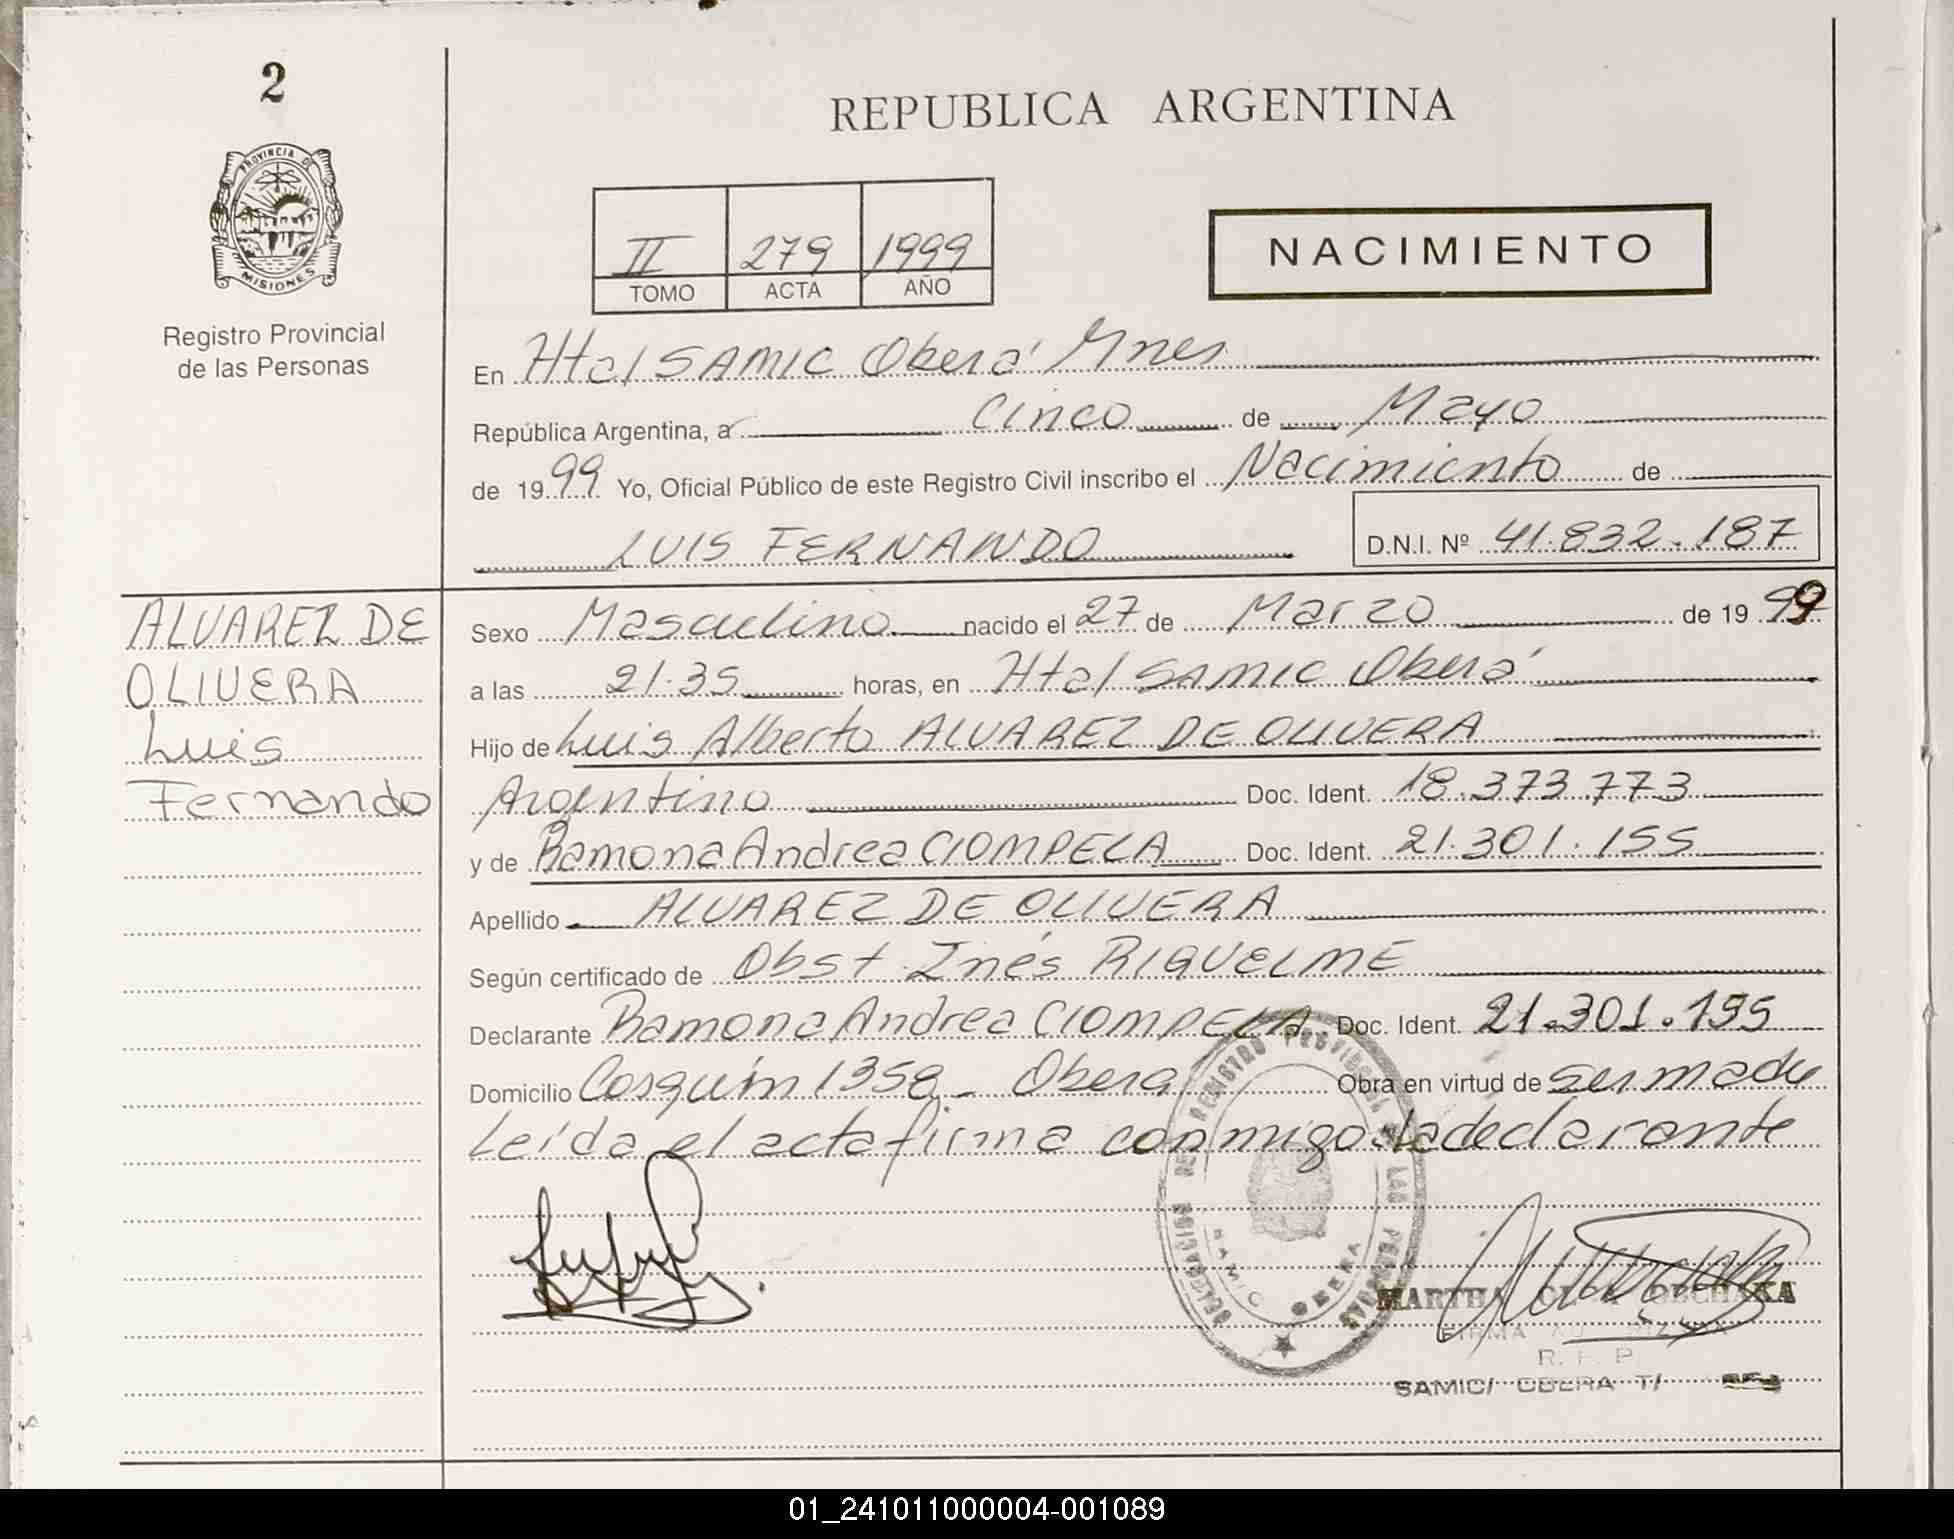 2
PROVINCIA DE
MISIONES
Registro Provincial
de las Personas
REPUBLICA ARGENTINA
II 279 1999
TOMO ACTA AÑO
NACIMIENTO
En Htal SAMIC Oberá Mnes
República Argentina, a Cinco de Mayo
de 1999 Yo, Oficial Público de este Registro Civil inscribo el Nacimiento de
LUIS FERNANDO D.N.I. Nº 41.832.187
ALVAREZ DE
OLIVERA
Luis
Fernando
Sexo Masculino nacido el 27 de Marzo de 1999
a las 21.35 horas, en Htal SAMIC Oberá
Hijo de Luis Alberto ALVAREZ DE OLIVERA
Argentino Doc. Ident. 18.373.773
y de Ramona Andrea CIOMPELA Doc. Ident. 21.301.155
Apellido ALVAREZ DE OLIVERA
Según certificado de Obst Inés RIQUELME
Declarante Ramona Andrea CIOMPELA Doc. Ident. 21.301.195
Domicilio Cosquín 1358 - Oberá Obra en virtud de ser madre
Leída el acta firma conmigo la declarante
DELEGACION DEL REGISTRO PROVINCIAL DE LAS PERSONAS
SAMIC OBERA
MARTHA
FIRMA
R. P
SAMIC/ OBERA
01_241011000004-001089